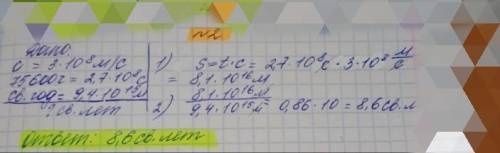 №2
Дано:
υ = 3·10⁸ м/с
75600г = 2,7·10⁸с
св. год = 9,4·10¹⁵м
св. лет
1) S = t·c = 27·10⁸с · 3·10⁸ м/с
= 8,1·10¹⁶м
2) 8,1·10¹⁶м / 9,4·10¹⁵м 0,86·10 = 8,6св.л
Ответ: 8,6 св. лет